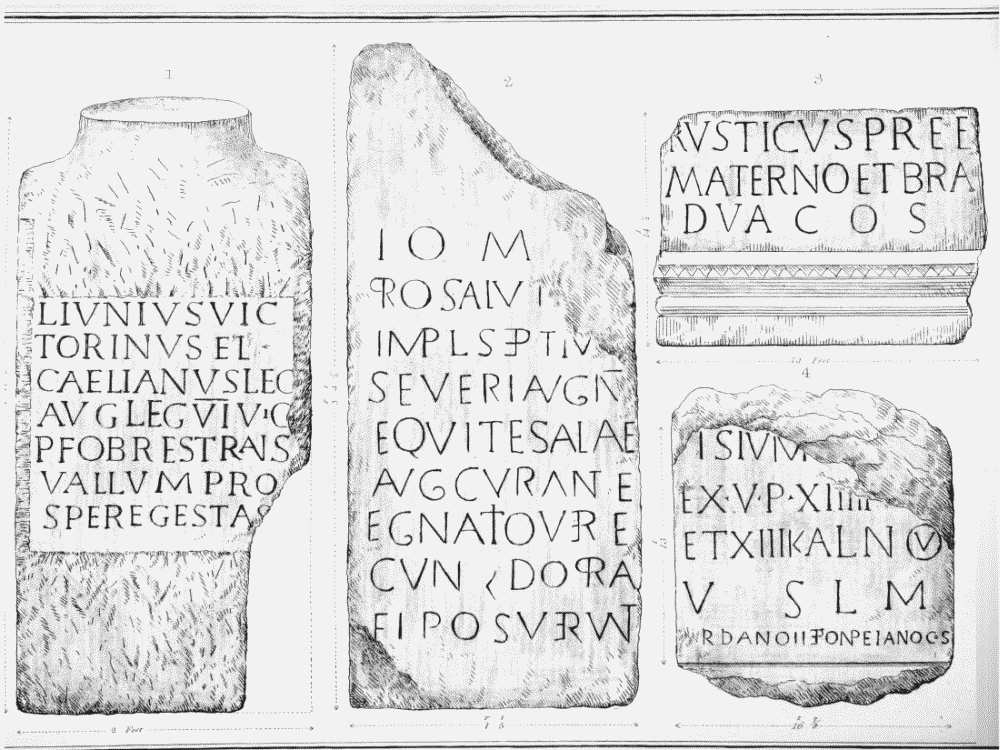 1
LIVNIVSVIC
TORINVS EL
CAELIANVSLEG
AVGLEGVIVIC
PFOBRESTRANS
VALLVM PRO
SPEREGESTAS
2
I O M
PROSALVT
IMPLSEPTIV
SEVERIAVGN
EQVITESALAE
AVGCVRANTE
EGNATOVERE
CVNDOPRA
EFIPOSVERVNT
3
RVSTICVSPREE
MATERNOETBRA
DVA C O S
10 Feet
4
ISIVM
EX·V·P·XIIII
ETXIIIIKALNOV
V S L M
VRBANOIIETONPEIANOCOS
2 Feet